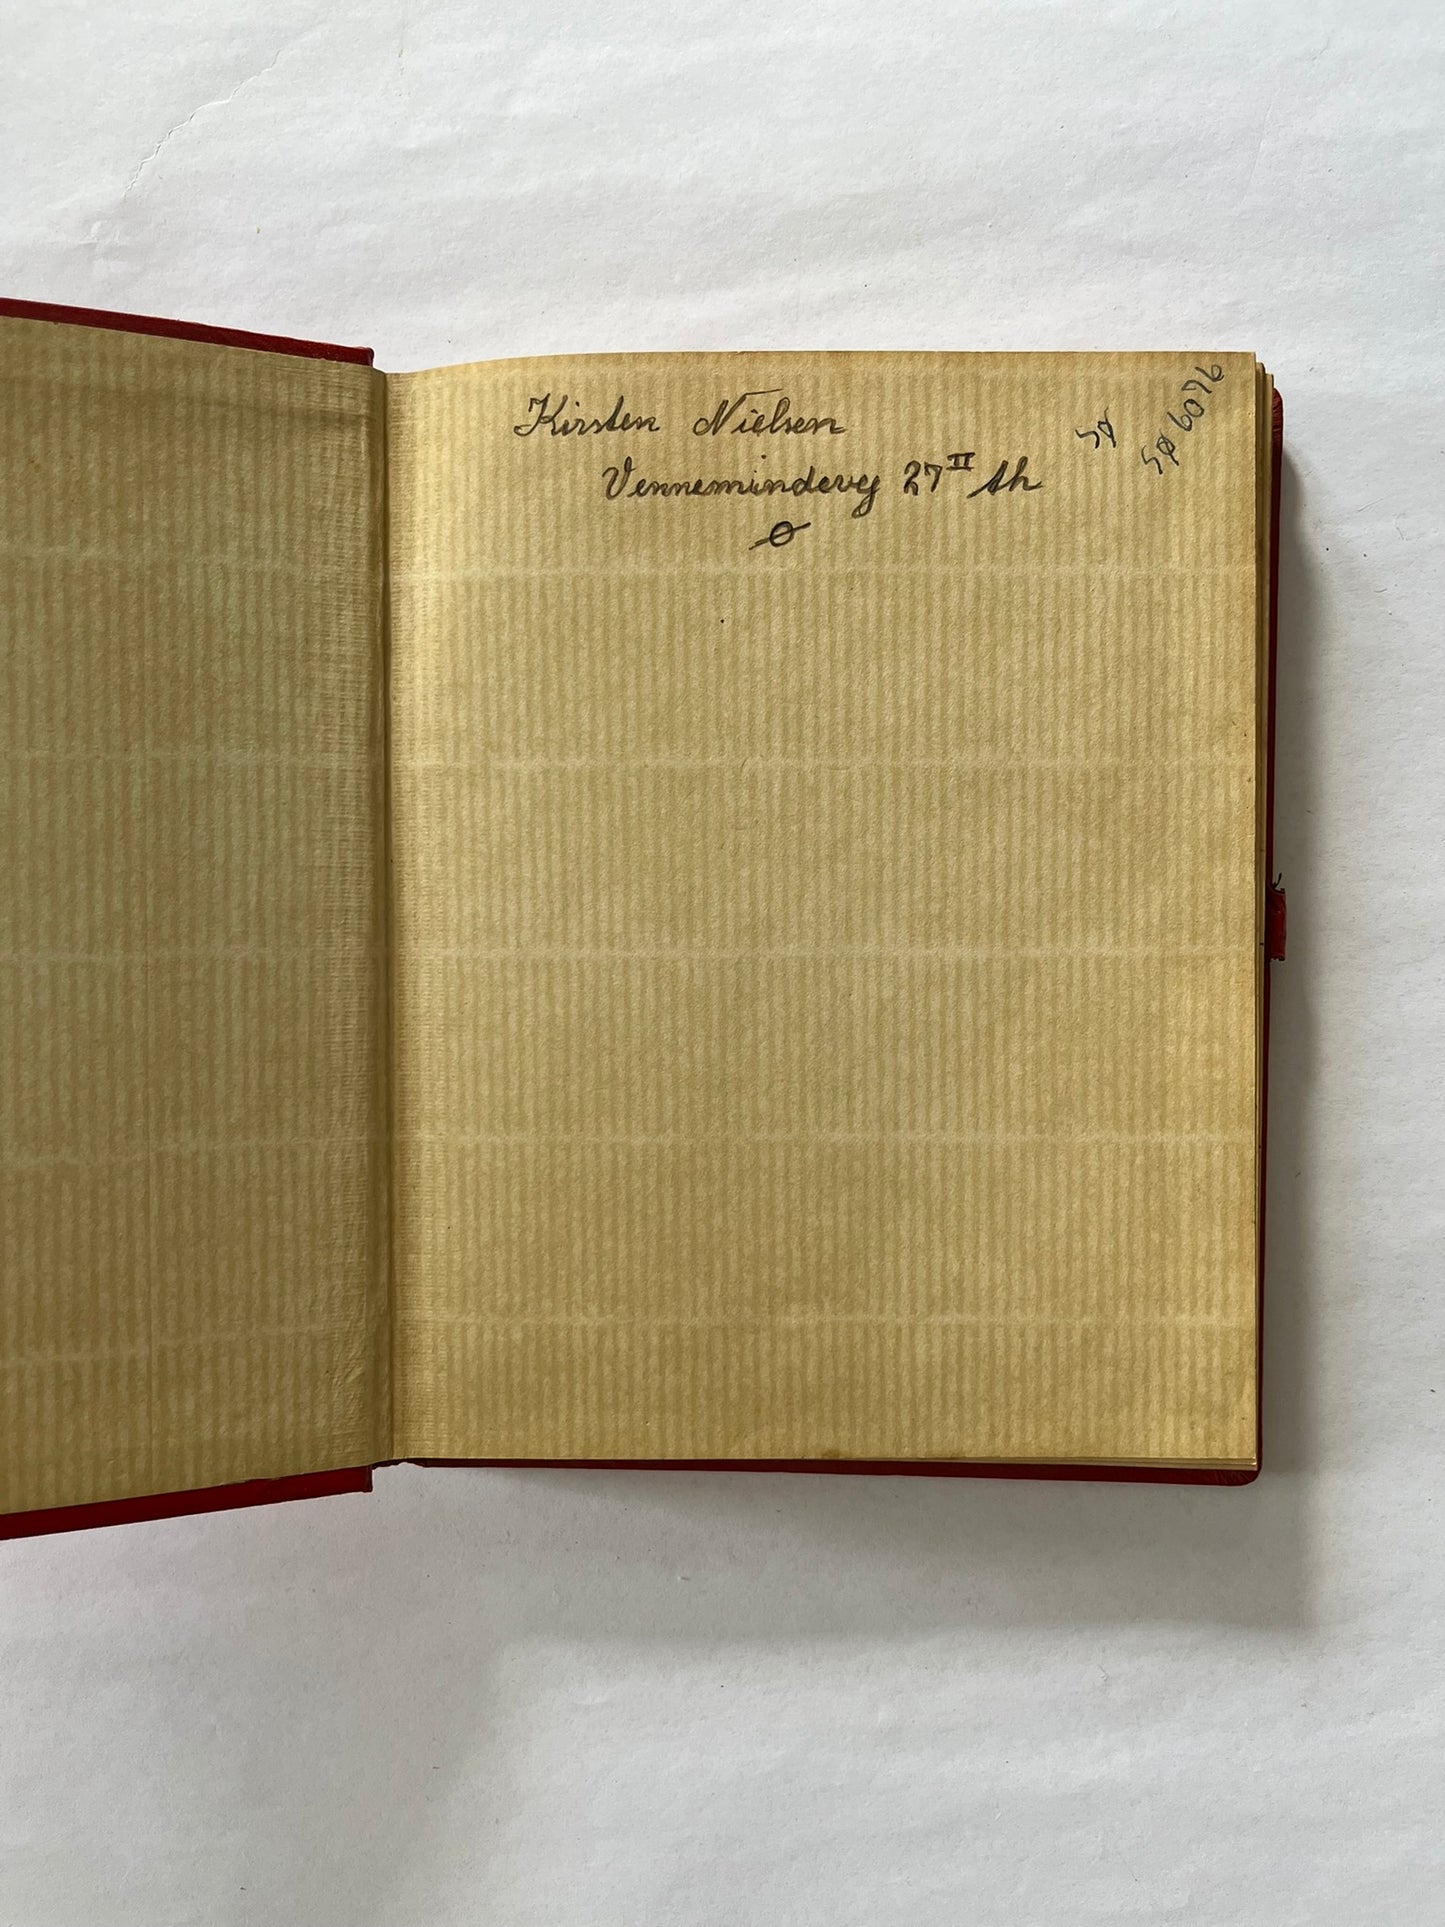 Kirsten Nielsen
Vennemindevej 27 II th
Ø
Sø
Sø 6076